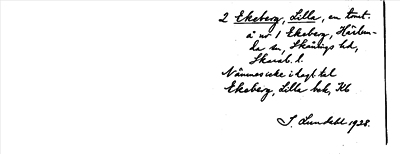 2 Ekeberg, Lilla, en tomt.
å nr 1 Ekeberg, Härlun-
da sn, Skånings hd,
Skarab. l.
Nämnes icke i kagt tal
Ekeberg, Lilla bok, Kb
S. Lundahl 1928.